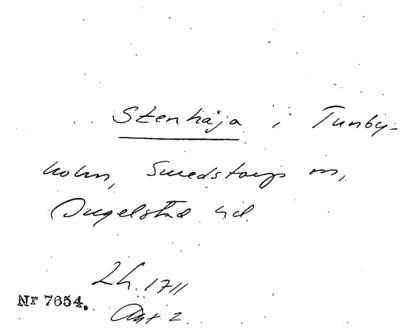 Stenhaja i Tunby-
holm, Smedstorps sn,
Ingelstad hd.
Lh. 1711
Akt 2
Nr 7654.